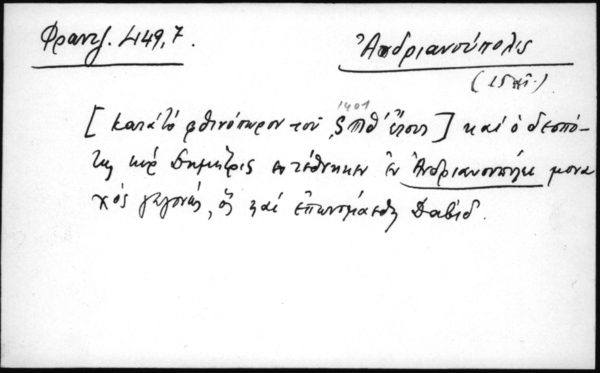 Φραντζ. 449,7.
Ἀνδριανούπολις
(15 αἰ.)
1401
[κατὰ τὸ φθινόπωρον τοῦ ,ϛ πθ' ἔτους] καὶ ὁ δεσπό-
της κὺρ Δημήτριος τέθνηκεν ἐν Ἀνδριανουπόλει μονα
χὸς γεγονώς, ὃς καὶ ἐπωνομάσθη Δαβίδ.